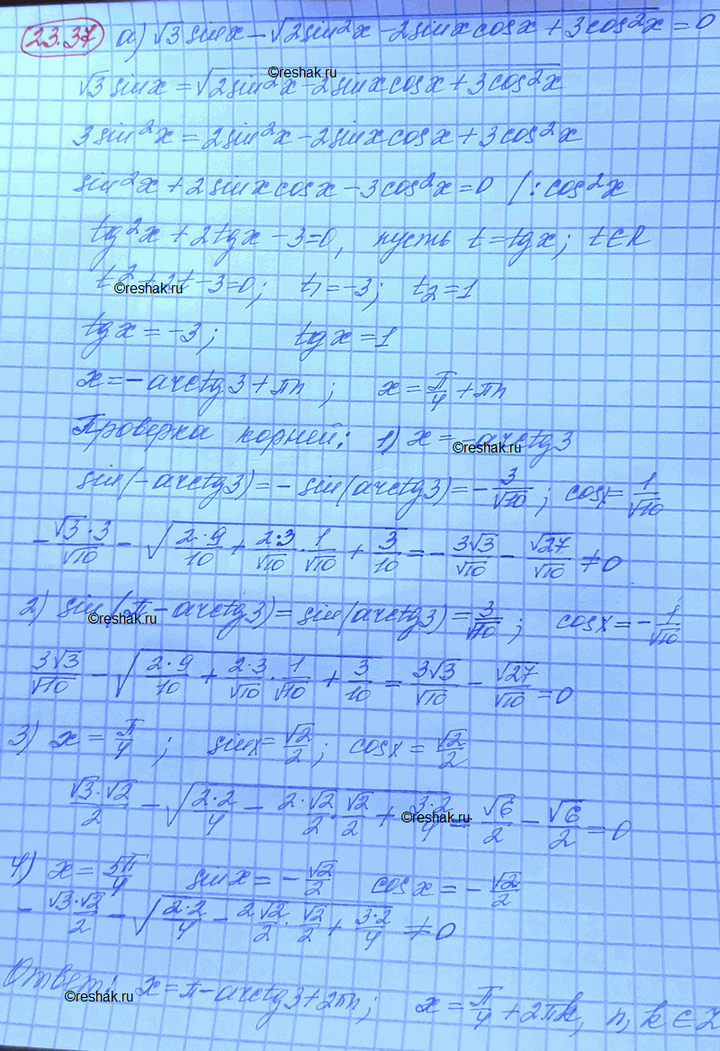 23.37 а) √3 sinx - √(2sin²x - 2sinxcosx + 3cos²x) = 0
©reshak.ru
√3 sinx = √(2sin²x - 2sinxcosx + 3cos²x)
3sin²x = 2sin²x - 2sinxcosx + 3cos²x
sin²x + 2sinxcosx - 3cos²x = 0 |:cos²x
tg²x + 2tgx - 3 = 0, пусть t = tgx; t∈R
t² + 2t - 3 = 0; t₁ = -3; t₂ = 1
©reshak.ru
tgx = -3; tgx = 1
x = -arctg3 + πn; x = π/4 + πn
Проверка корней: 1) x = -arctg3
©reshak.ru
sin(-arctg3) = -sin(arctg3) = -3/√10; cosx = 1/√10
-√3·3/√10 - √(2·9/10 + 2·3/√10 · 1/√10 + 3/10) = -3√3/√10 - √27/√10 ≠ 0
2) sin(π - arctg3) = sin(arctg3) = 3/√10; cosx = -1/√10
©reshak.ru
3√3/√10 - √(2·9/10 + 2·3/√10 · 1/√10 + 3/10) = 3√3/√10 - √27/√10 = 0
3) x = π/4; sinx = √2/2; cosx = √2/2
√3·√2/2 - √(2·2/4 - 2·√2/2 · √2/2 + 3·2/4) = √6/2 - √6/2 = 0
©reshak.ru
4) x = 5π/4 sinx = -√2/2 cosx = -√2/2
-√3·√2/2 - √(2·2/4 - 2√2/2 · √2/2 + 3·2/4) ≠ 0
Ответ: x = π - arctg3 + 2πn; x = π/4 + 2πk, n, k ∈ Z
©reshak.ru